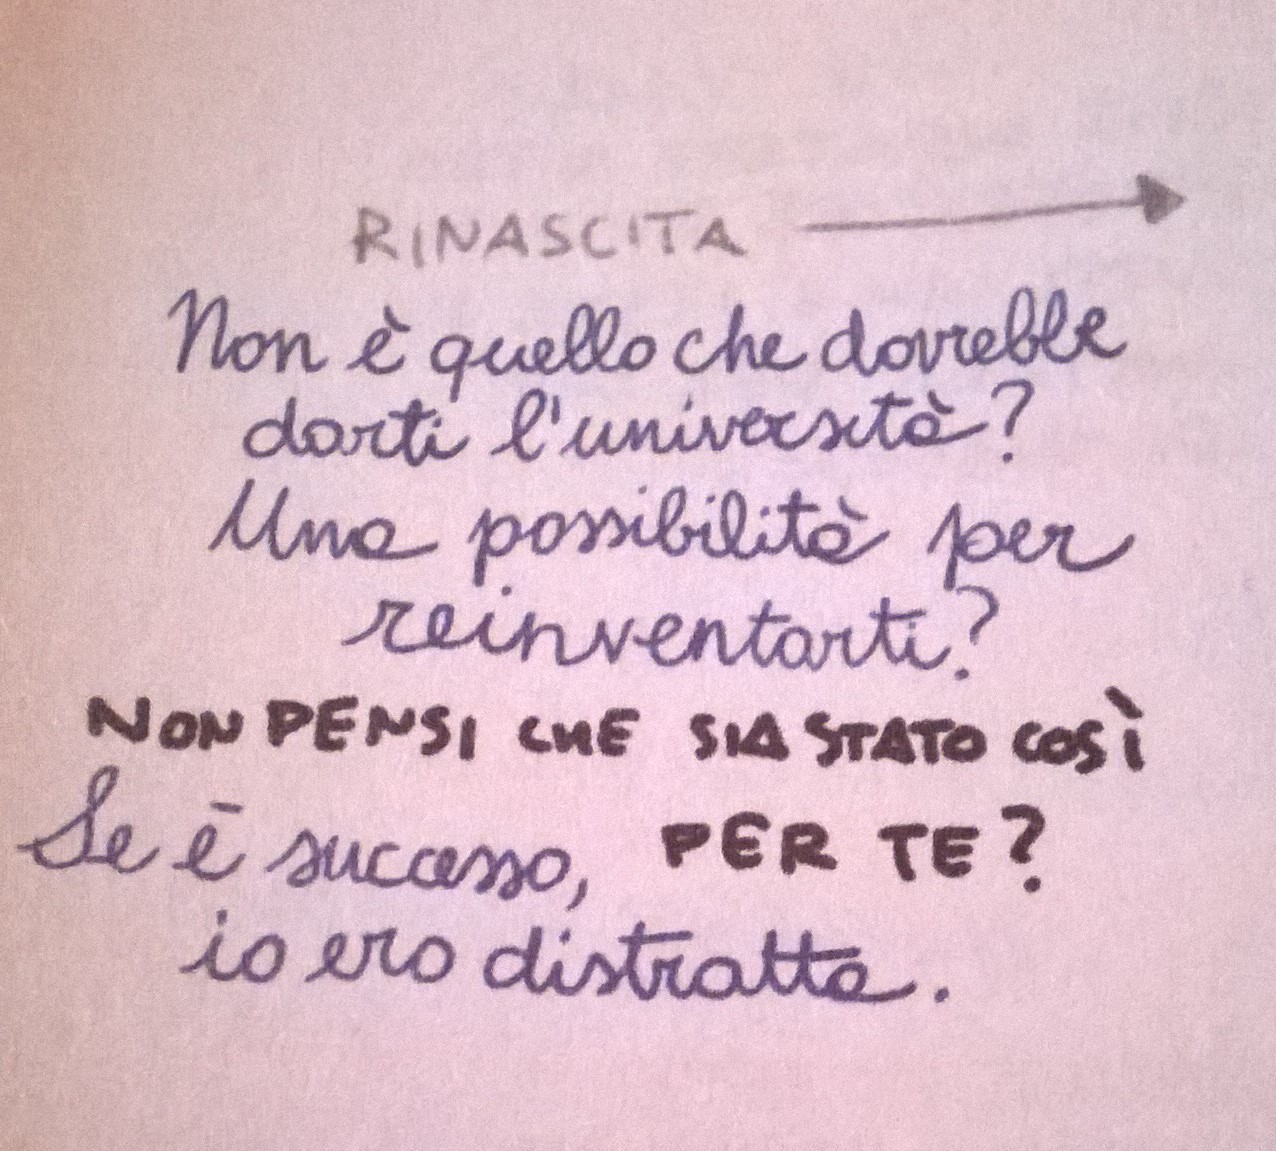 RINASCITA
Non è quello che dovrebbe
darti l'università?
Una possibilità per
reinventarti?
NON PENSI CHE SIA STATO COSÌ
PER TE?
Se è successo,
io ero distratta.